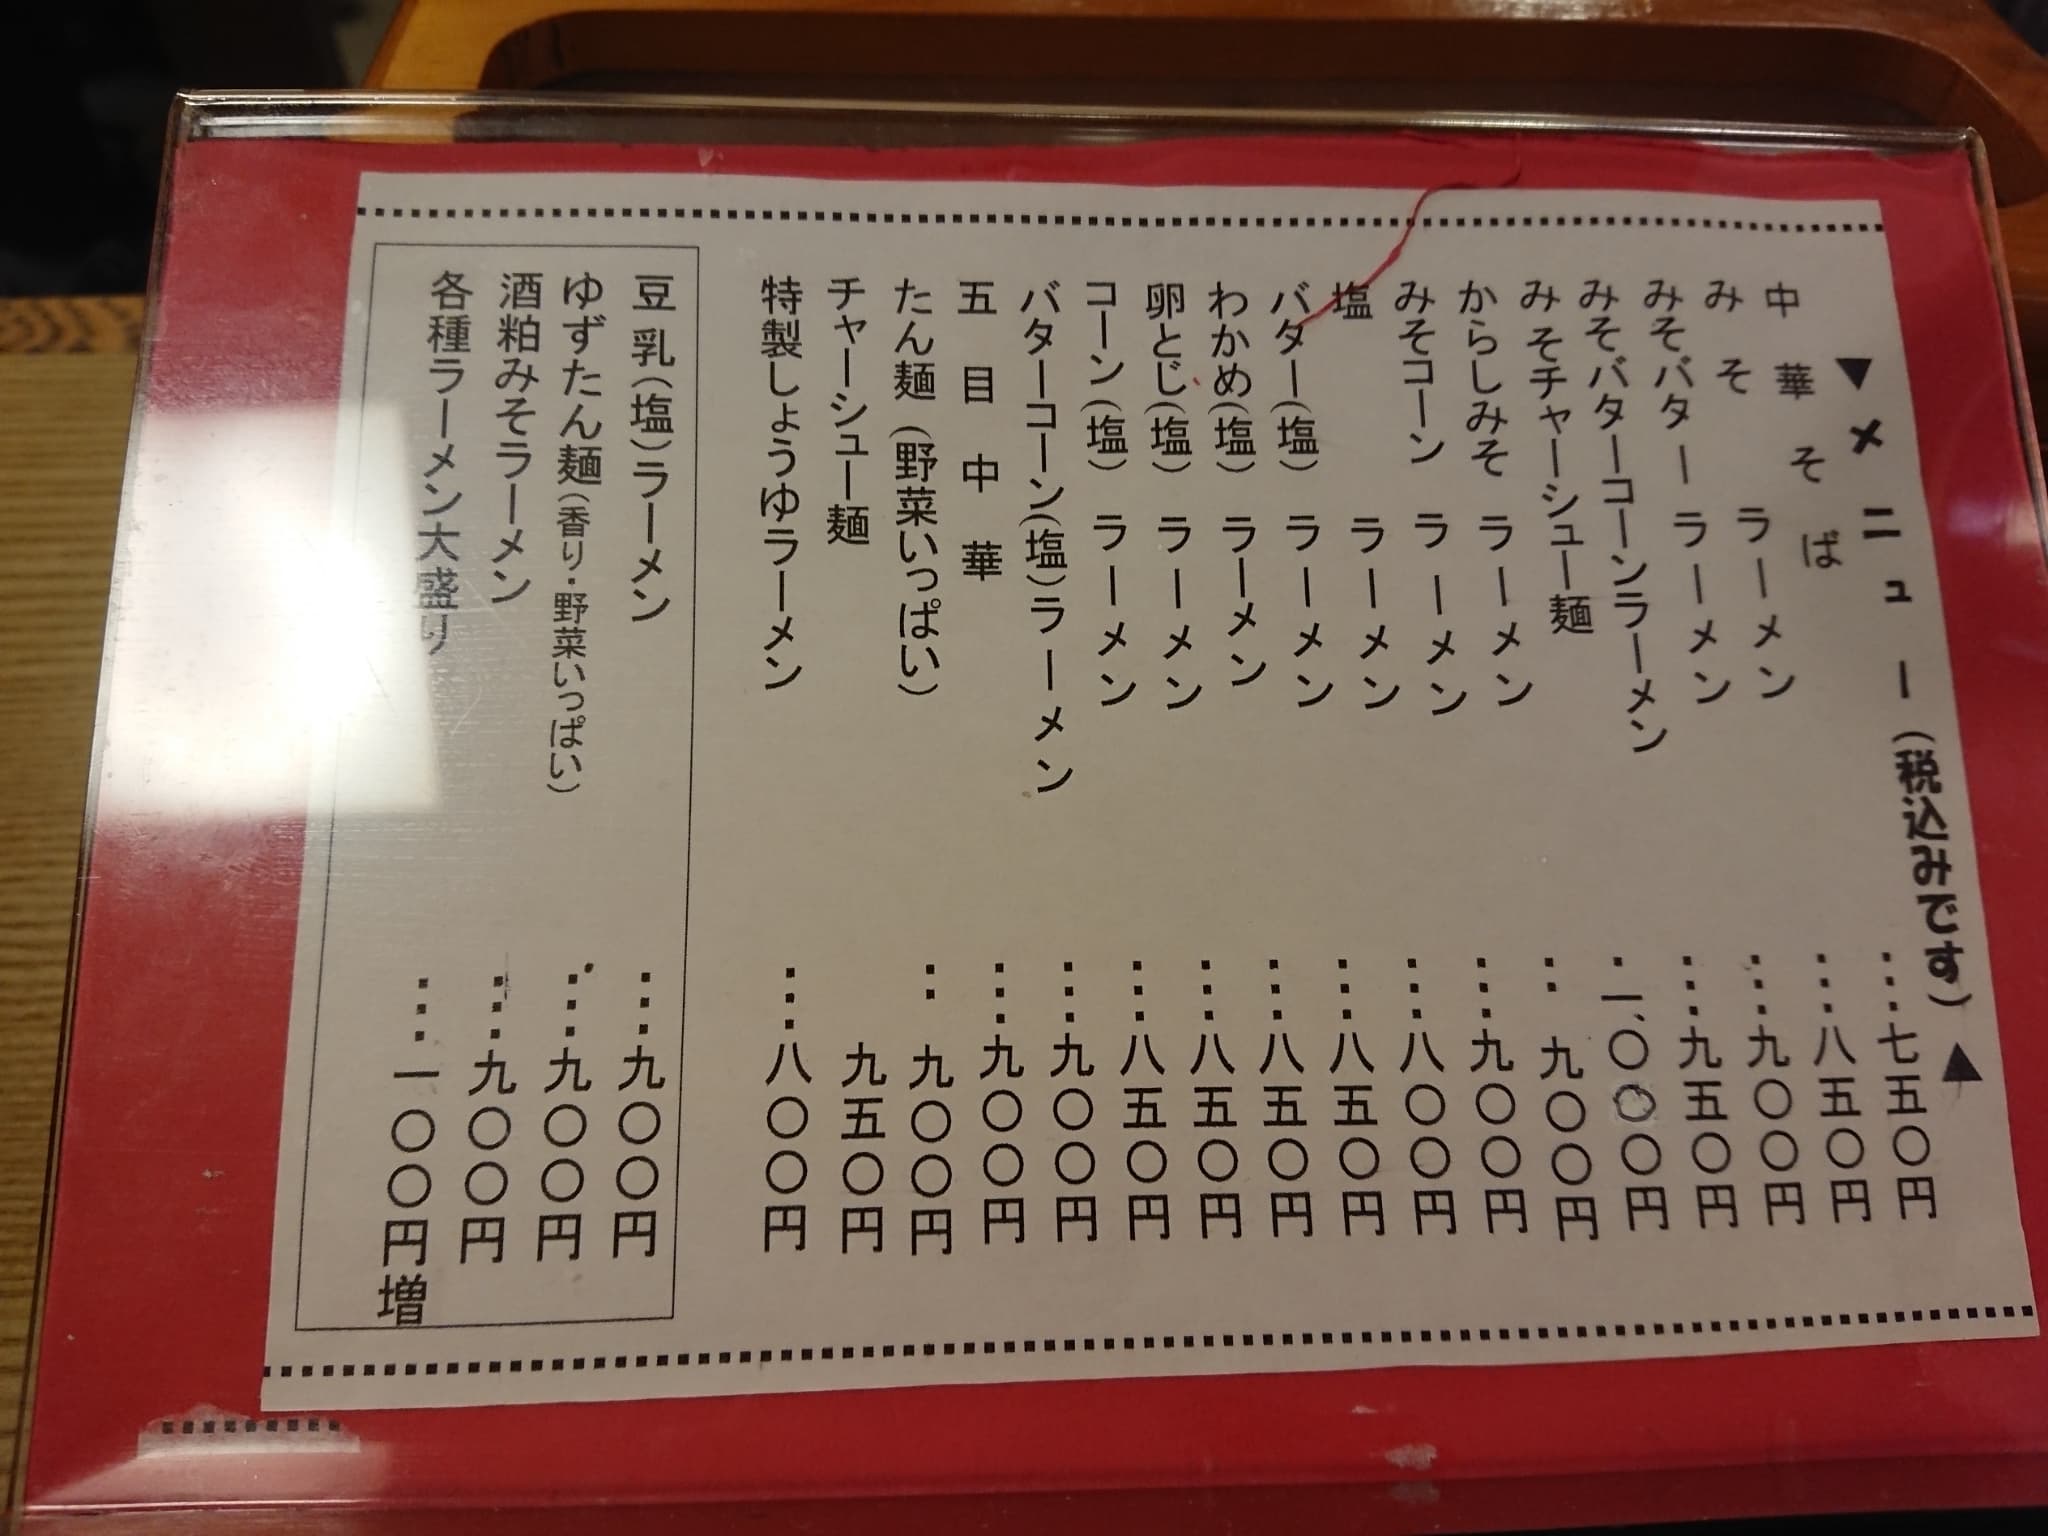 ▼メニュー(税込みです)▲
中華そば……七五〇円
みそラーメン……八五〇円
みそバターラーメン……九〇〇円
みそバターコーンラーメン……九五〇円
みそチャーシュー麺…一、〇〇〇円
からしみそラーメン…九〇〇円
みそコーンラーメン……九〇〇円
塩ラーメン……八〇〇円
バター(塩)ラーメン……八五〇円
わかめ(塩)ラーメン……八五〇円
卵とじ(塩)ラーメン……八五〇円
コーン(塩)ラーメン……八五〇円
バターコーン(塩)ラーメン……九〇〇円
五目中華……九〇〇円
たん麺(野菜いっぱい)…九〇〇円
チャーシュー麺 九五〇円
特製しょうゆラーメン……八〇〇円
豆乳(塩)ラーメン……九〇〇円
ゆずたん麺(香り・野菜いっぱい)……九〇〇円
酒粕みそラーメン……九〇〇円
各種ラーメン大盛り……一〇〇円増